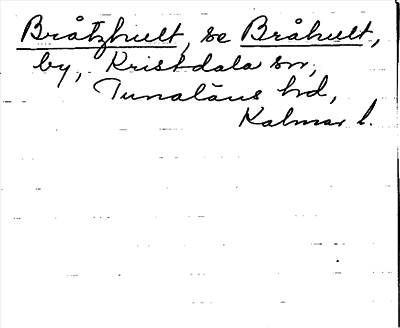 Bråtzhult, se Bråhult,
by, Kristdala sn,
Tunaläns hd,
Kalmar l.